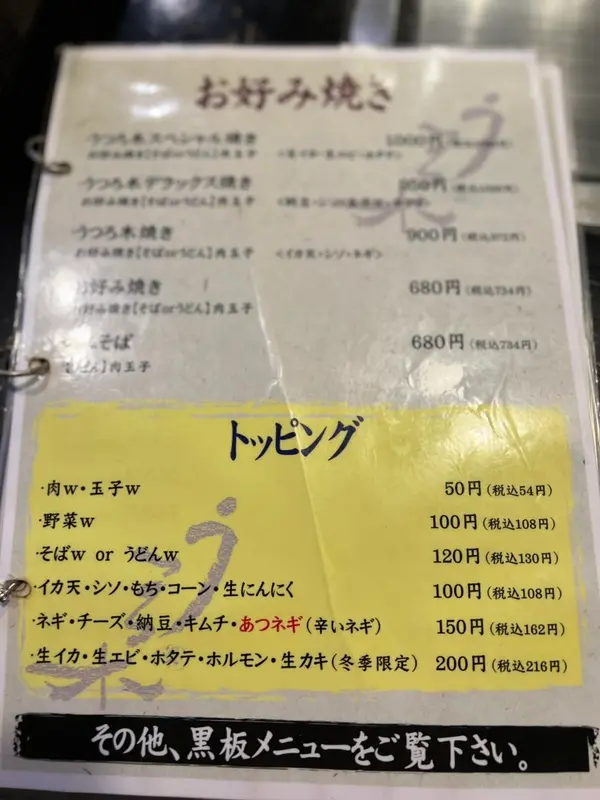 お好み焼き
うつろ木スペシャル焼き
お好み焼き【そばorうどん】肉玉子 <生イカ・生エビ・ホタテ>
うつろ木デラックス焼き
お好み焼き【そばorうどん】肉玉子
うつろ木焼き 900円(税込972円)
お好み焼き【そばorうどん】肉玉子 <イカ天・シソ・ネギ>
お好み焼き 680円(税込734円)
お好み焼き【そばorうどん】肉玉子
そば 680円(税込734円)
どん】肉玉子
トッピング
・肉w・玉子w 50円(税込54円)
・野菜w 100円(税込108円)
・そばw or うどんw 120円(税込130円)
・イカ天・シソ・もち・コーン・生にんにく 100円(税込108円)
・ネギ・チーズ・納豆・キムチ・あつネギ(辛いネギ) 150円(税込162円)
・生イカ・生エビ・ホタテ・ホルモン・生カキ(冬季限定) 200円(税込216円)
その他、黒板メニューをご覧下さい。